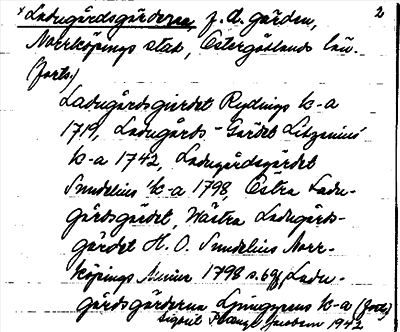 x Ladugårdsgärdena, f.d. gärden, 2
Norrköpings stad, Östergötlands län.
(forts.)
Ladugårdsgiärdet Rydings k-a
1719, Ladugårds-Gärdet Litzenius
k-a 1742, Ladugårdsgärdet
Sundelius k-a 1798, Östra Ladu-
gårdsgärdet, Wästra Ladugårds-
gärdet H. O. Sundelius Norr-
köpings Minne 1798 s. 69, Ladu-
gårdsgärderna Ljunggrens k-a (forts)
Sigurd 1942